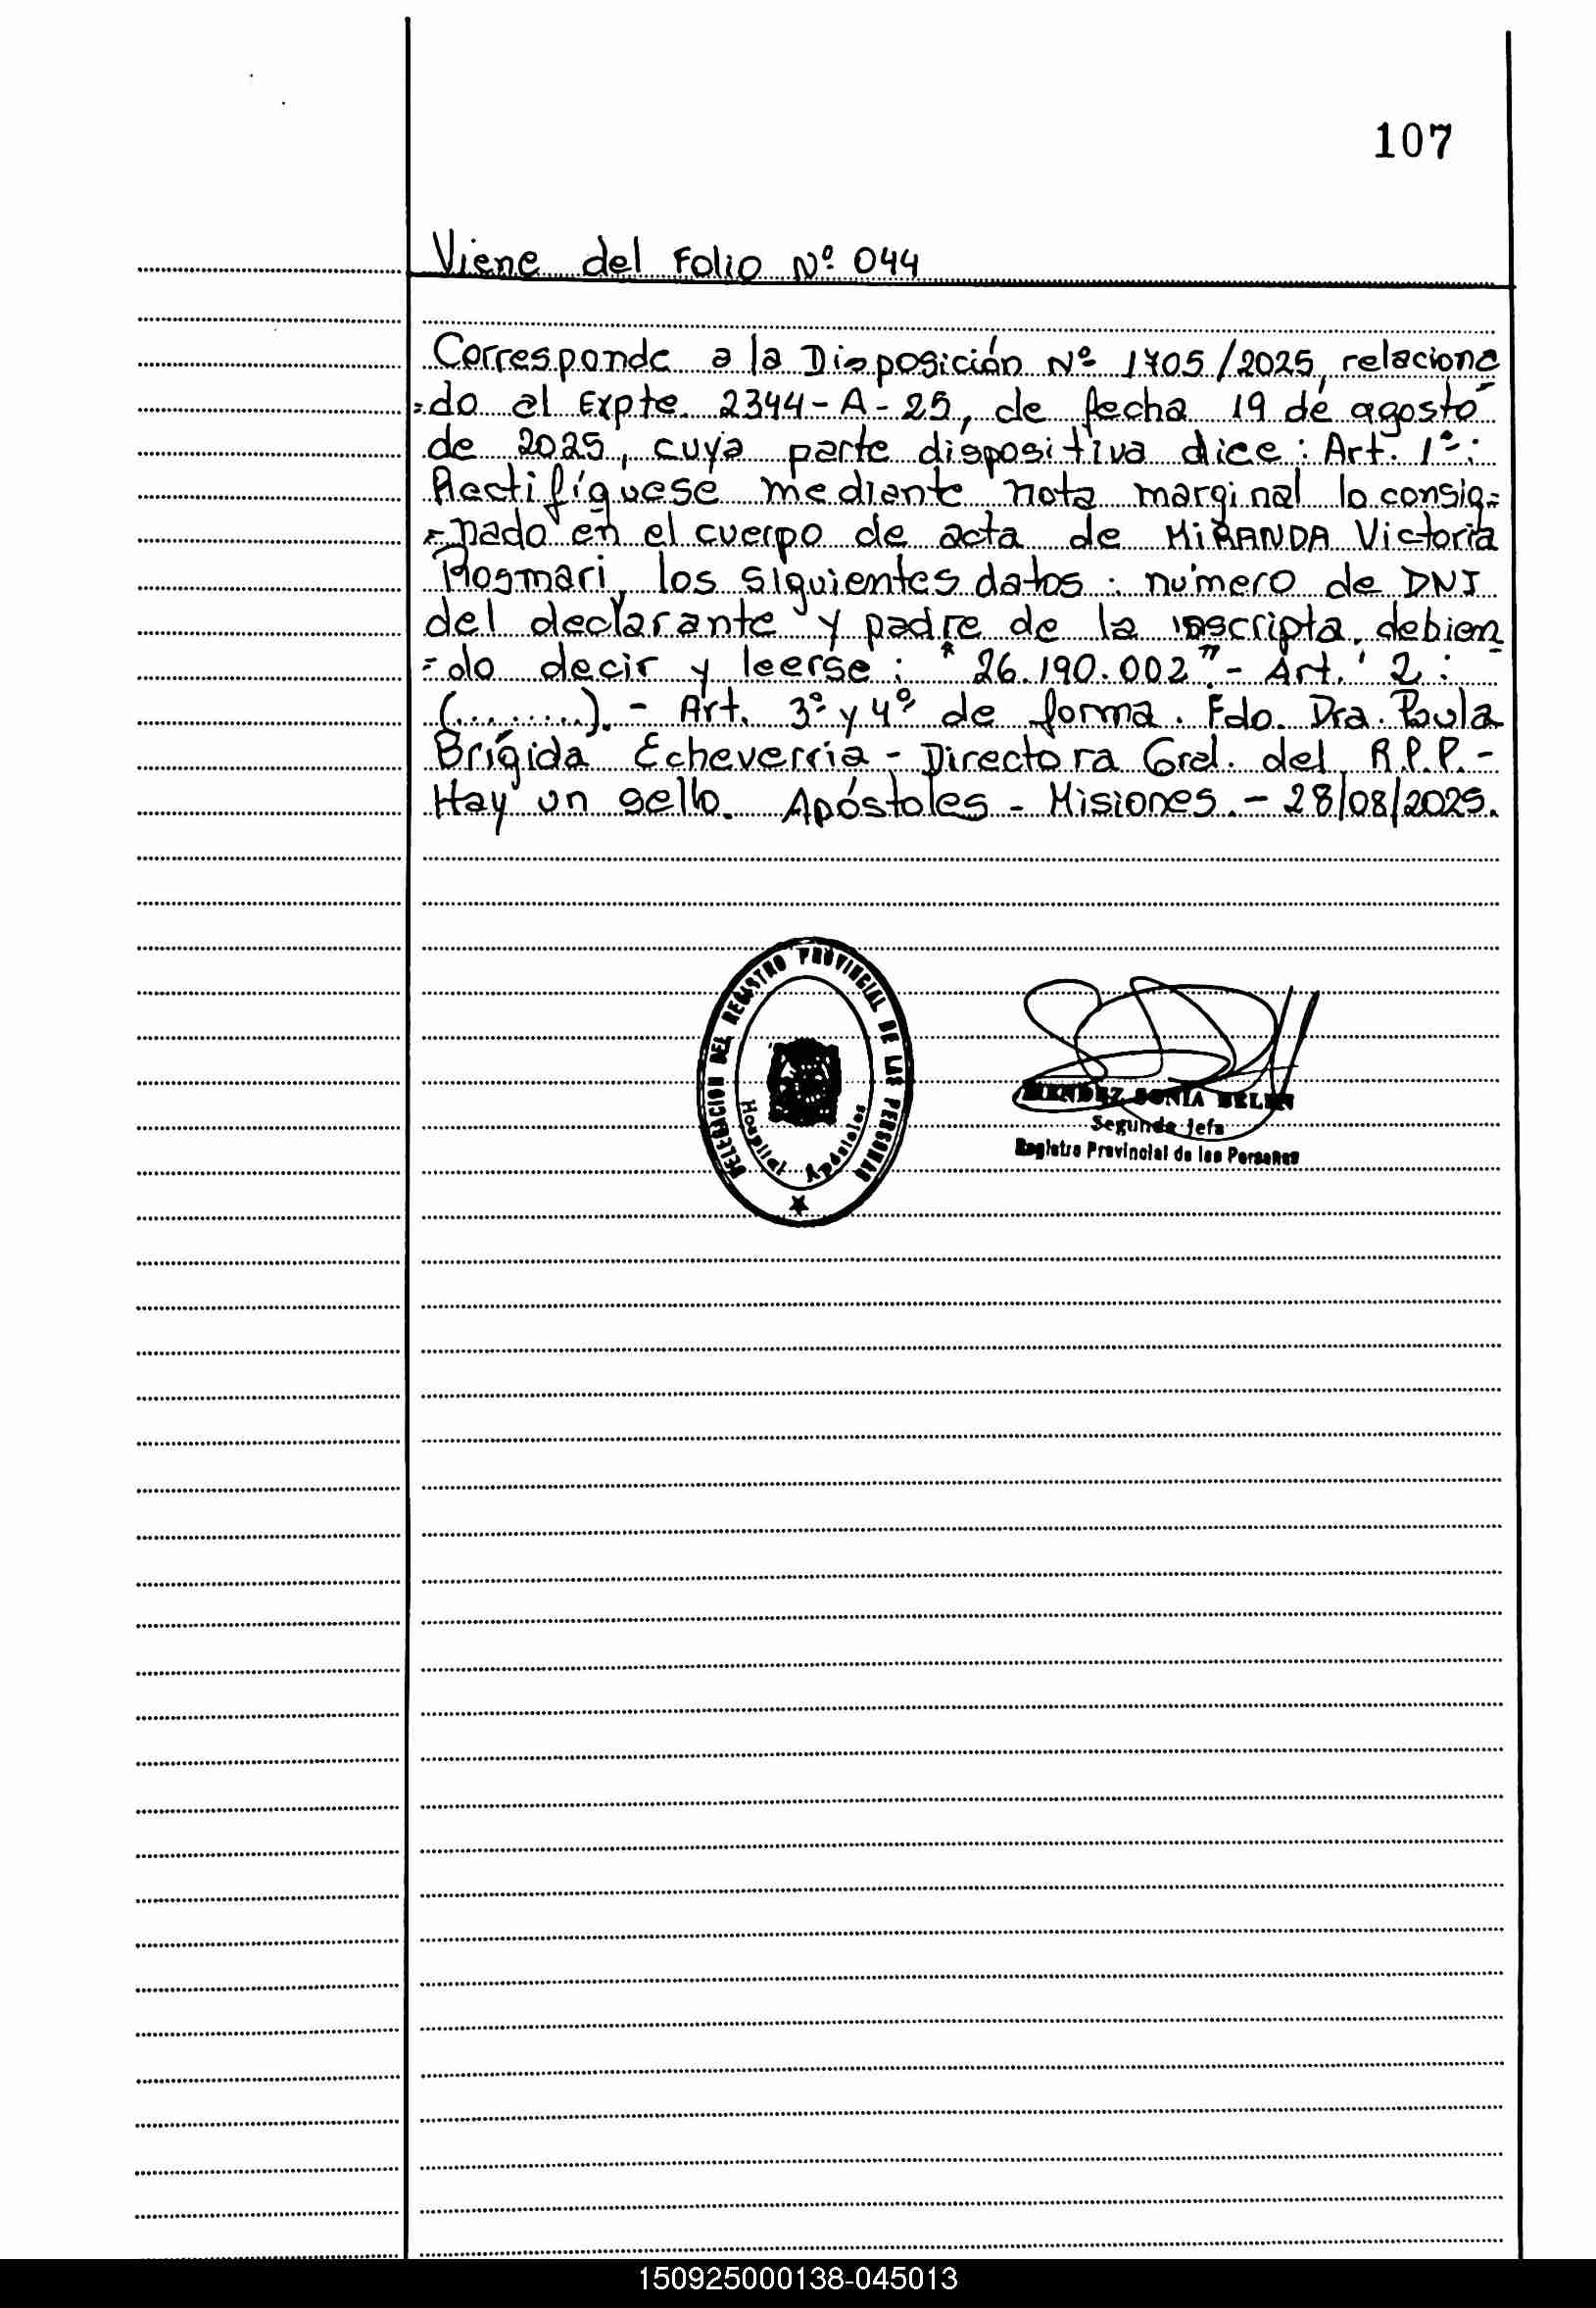 107
Viene del Folio Nº 044
Corresponde a la Disposición Nº 1705/2025, relaciona
=do al Expte. 2344-A-25, de fecha 19 de agosto
de 2025, cuya parte dispositiva dice: Art. 1º:
Rectifíquese mediante nota marginal lo consig=
=nado en el cuerpo de acta de MIRANDA Victoria
Rosmari, los siguientes datos: número de DNI
del declarante y padre de la inscripta, debien
=do decir y leerse: "26.190.002".- Art. 2:
(........).- Art. 3º y 4º de forma. Fdo. Dra. Paula
Brígida Echeverria - Directora Gral. del R.P.P.-
Hay un sello. Apóstoles - Misiones.- 28/08/2025.
DELEGACION DEL REGISTRO PROVINCIAL DE LAS PERSONAS
Hospital Apóstoles
MENDEZ SONIA BELEN
Segunda Jefa
Registro Provincial de las Personas
150925000138-045013